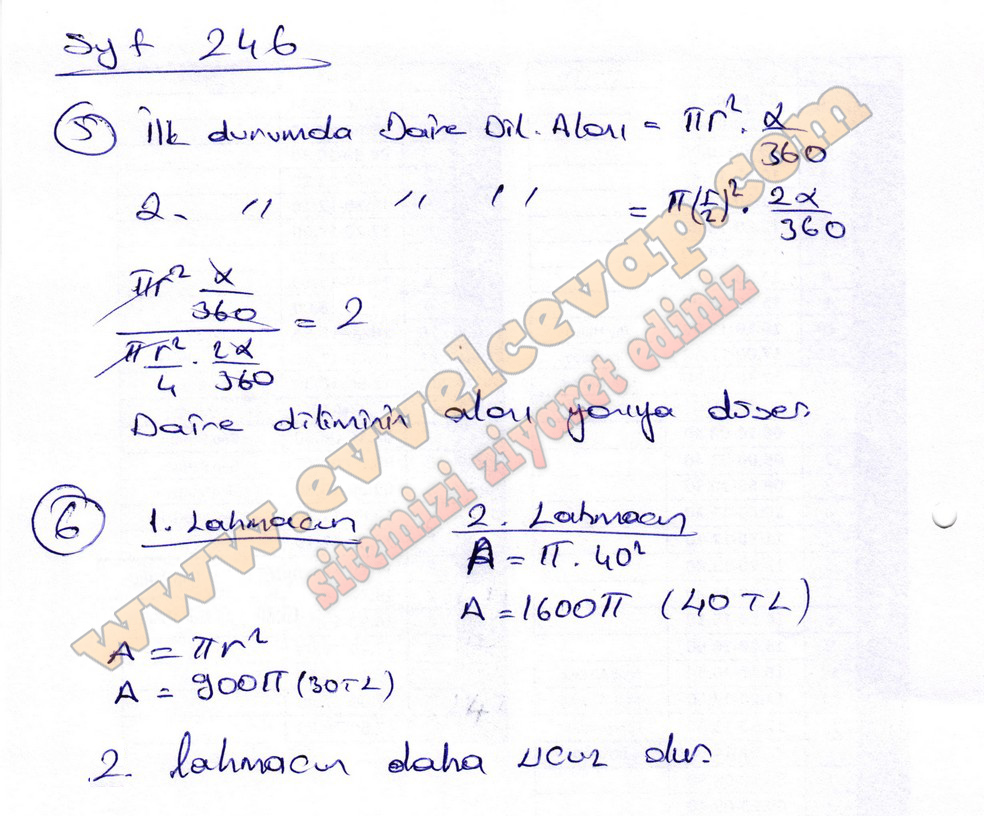 Syf 246
5 İlk durumda Daire Dil. Alanı = πr². α/360
2. " " " = π(r/2)². 2α/360
πr² α/360 / πr²/4 . 2α/360 = 2
Daire diliminin alanı yarıya düşer.
6 1. Lahmacun 2. Lahmacun
A = π . 40²
A = 1600π (40TL)
A = πr²
A = 900π (30TL)
2. lahmacun daha ucuz olur.
www.evvelcevap.com
sitemizi ziyaret ediniz